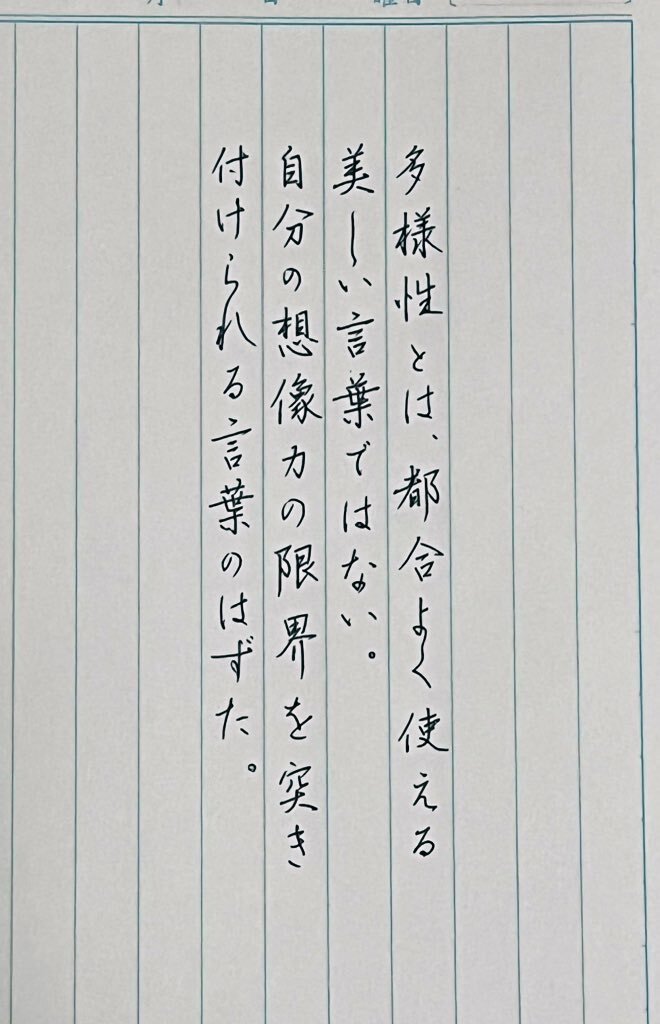 多様性とは、都合よく使える
美しい言葉ではない。
自分の想像力の限界を突き
付けられる言葉のはずた。